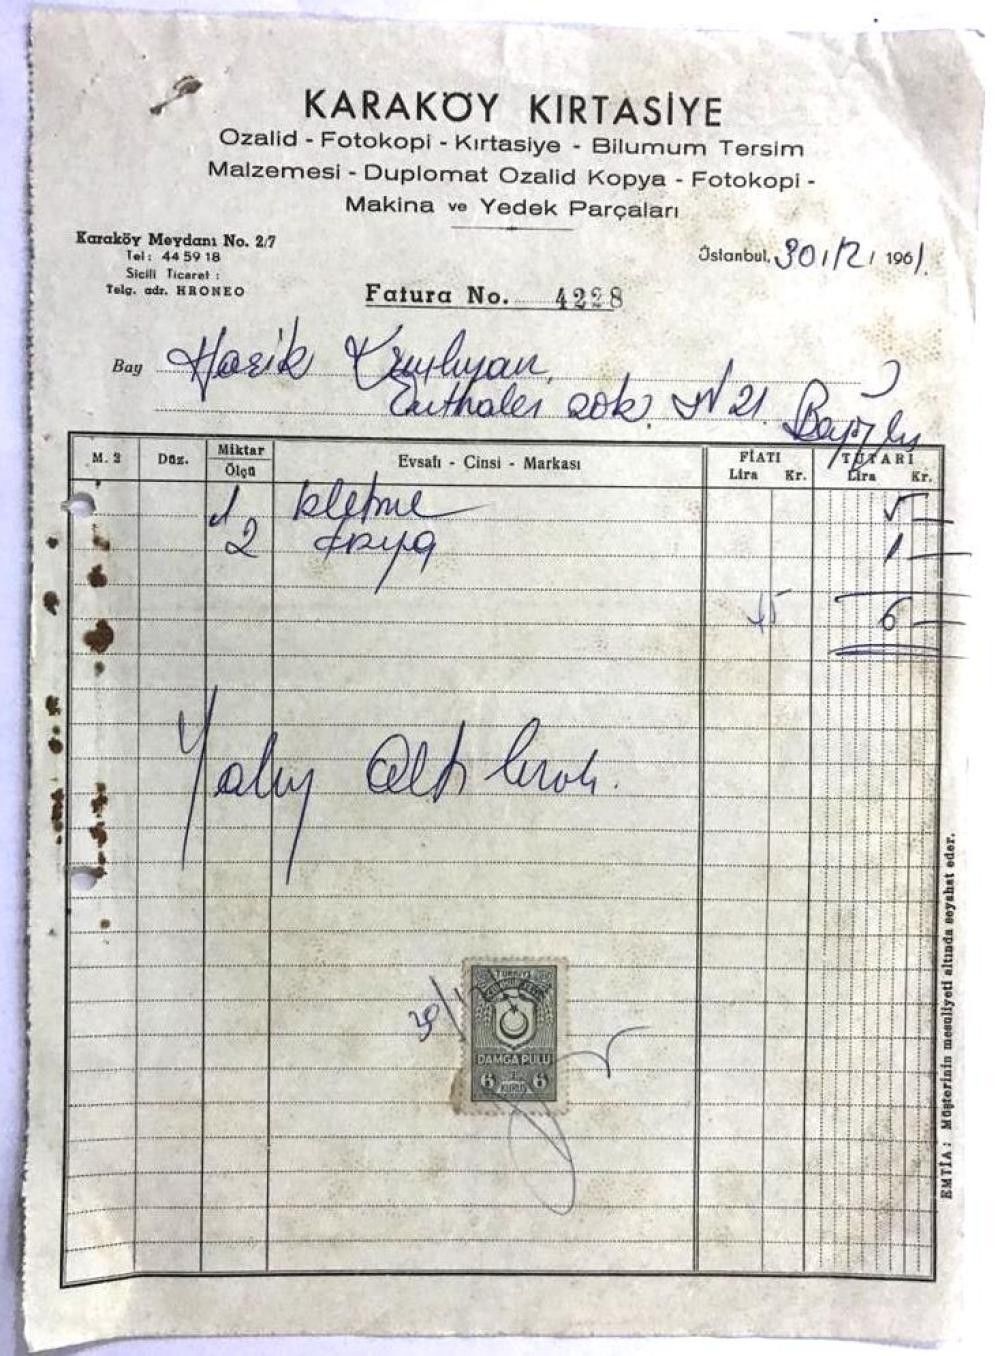 KARAKÖY KIRTASİYE
Ozalid - Fotokopi - Kırtasiye - Bilumum Tersim
Malzemesi - Duplomat Ozalid Kopya - Fotokopi -
Makina ve Yedek Parçaları
Karaköy Meydanı No. 2/7
Tel: 44 59 18
Sicili Ticaret :
Telg. adr. HRONEO
İstanbul, 30/12/1961.
Fatura No. 4228
Bay Hasik
sok. N 21 Beyoğlu
M. 2 Düz. Miktar Ölçü Evsafı - Cinsi - Markası FİATI Lira Kr. TUTARI Lira Kr.
1 5 —
2 1 —
6 —
Yalnız Altı liradır.
TÜRKİYE
DAMGA PULU
6 KURUŞ 6
EMTİA: Müşterinin mesuliyeti altında seyahat eder.